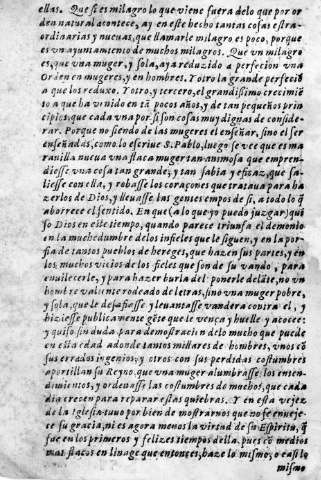 ellas. Que si es milagro lo que viene fuera delo que por or
den natural acontece, ay en este hecho tantas cosas estra-
ordinarias y nueuas, que llamarle milagro es poco, porque
es vn ayuntamiento de muchos milagros. Que vn milagro
es, que vna muger, y sola, aya reduzido a perfecion vna
Orden en mugeres, y en hombres. Y otro la grande perfecciō
a que los reduxo. Y otro, y tercero, el grandissimo crecimiē
to a que ha venido en tā pocos años, y de tan pequeños prin
cipios, que cada vna por si son cosas muy dignas de conside-
rar. Porque no siendo de las mugeres el enseñar, sino el ser
enseñadas, como lo escriue S. Pablo, luego se vee que es ma
rauilla nueua vna flaca muger tan animosa que empren-
diesse vna cosa tan grande, y tan sabia y efizaz, que sa-
liesse con ella, y robasse los coraçones que trataua para ha
zerlos de Dios, y lleuasse las gentes empos de si, a todo lo q̄
aborrece el sentido. En que (a lo que yo puedo juzgar) qui
so Dios en este tiempo, quando parece triunfa el demonio
en la muchedumbre de los infieles que le siguen, y en la por-
fia de tantos pueblos de hereges, que hazen sus partes, y en
los muchos vicios de los fieles que son de su vando, para
enuilecerle, y para hazer burla del ponerle delāte, no vn
hombre valiente rodeado de letras, sino vna muger pobre,
y sola, que le desafiasse y leuantasse vandera contra el, y
hiziesse publicamente gēte que le vença y huelle y acocee:
y quiso sin duda para demostracion delo mucho que puede
en esta edad adonde tantos millares de hombres, vnos cō
sus errados ingenios, y otros con sus perdidas costumbres
aportillan su Reyno, que vna muger alumbrasse los enten-
dimientos, y ordenasse las costumbres de muchos, que cada
dia crecen para reparar estas quiebras. Y en esta vejez
de la Iglesia tuuo por bien de mostrarnos que no se enueje-
ce su gracia, ni es agora menos la virtud de su Espiritu, q̄
fue en los primeros y felizes tiempos della, pues cō medios
mas flacos en linage que entonces, haze lo mismo, o casi lo
mismo